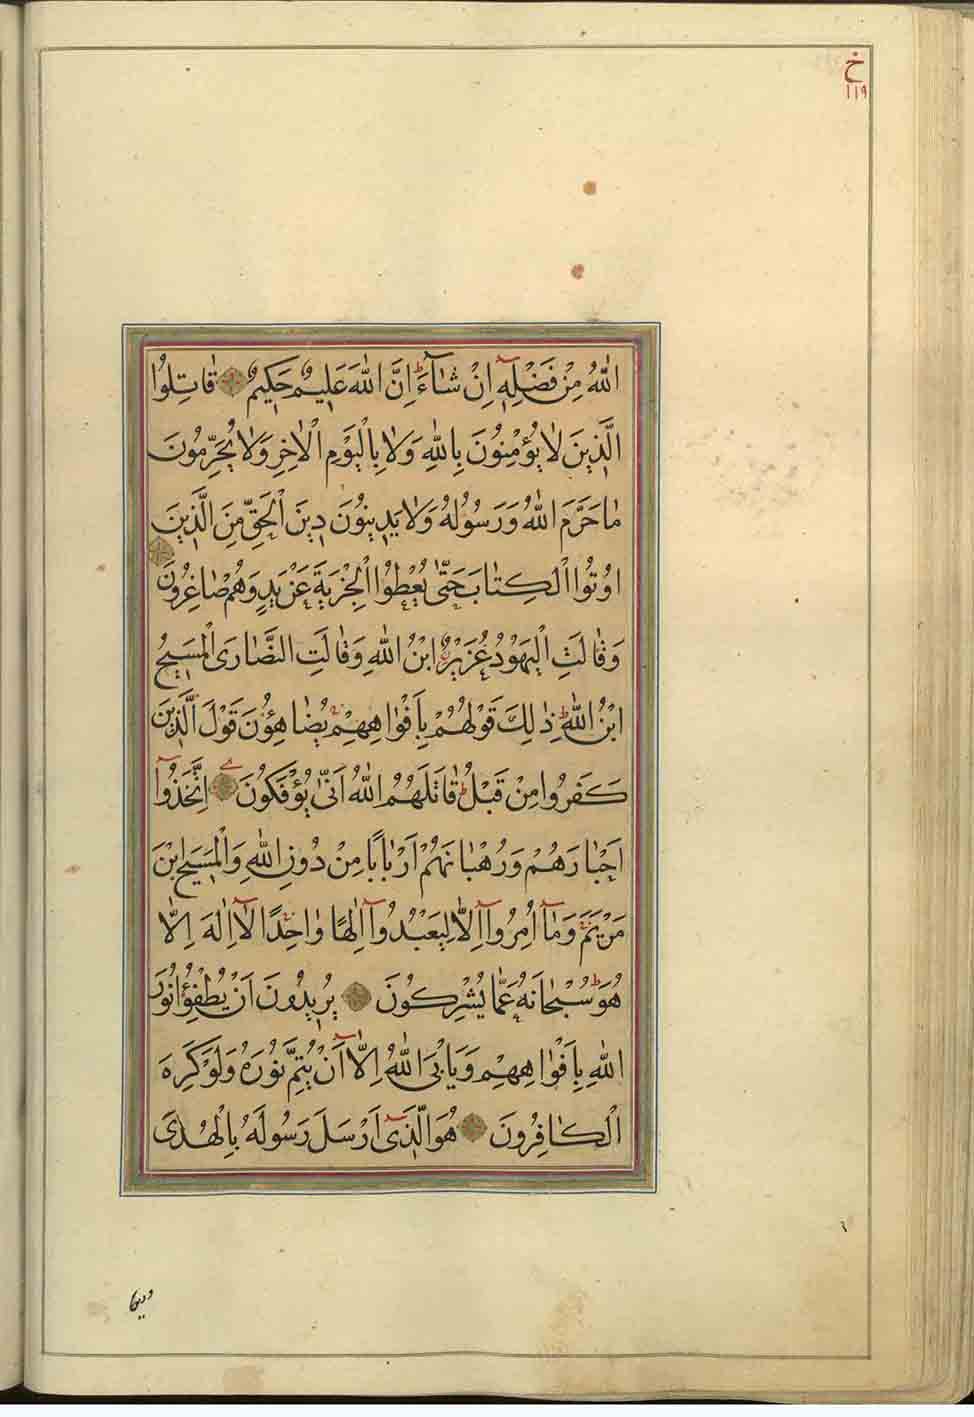 خ
١١٩
اللهُ مِنْ فَضْلِهٖٓ اِنْ شٰٓاءَ اِنَّ اللهَ عَلِيمٌ حَكِيمٌ قٰاتِلُوا
الَّذِينَ لٰا يُؤْمِنُونَ بِاللهِ وَلٰا بِالْيَوْمِ الْاٰخِرِ وَلٰا يُحَرِّمُونَ
مٰا حَرَّمَ اللهُ وَرَسُولُهُ وَلٰا يَدِينُونَ دِينَ الْحَقِّ مِنَ الَّذِينَ
اُوتُوا الْكِتٰابَ حَتّٰى يُعْطُوا الْجِزْيَةَ عَنْ يَدٍ وَهُمْ صٰاغِرُونَ
وَقٰالَتِ الْيَهُودُ عُزَيْرٌ ابْنُ اللهِ وَقٰالَتِ النَّصٰارَى الْمَسِيحُ
ابْنُ اللهِ ذٰلِكَ قَوْلُهُمْ بِاَفْوٰاهِهِمْ يُضٰاهِؤُنَ قَوْلَ الَّذِينَ
كَفَرُوا مِنْ قَبْلُ قٰاتَلَهُمُ اللهُ اَنّٰى يُؤْفَكُونَ اِتَّخَذُوٓا
اَحْبٰارَهُمْ وَرُهْبٰانَهُمْ اَرْبٰابًا مِنْ دُونِ اللهِ وَالْمَسِيحَ ابْنَ
مَرْيَمَ وَمٰٓا اُمِرُوٓا اِلّٰا لِيَعْبُدُوٓا اِلٰهًا وٰاحِدًا لٰٓا اِلٰهَ اِلّٰا
هُوَ سُبْحٰانَهُ عَمّٰا يُشْرِكُونَ يُرِيدُونَ اَنْ يُطْفِؤُا نُورَ
اللهِ بِاَفْوٰاهِهِمْ وَيَاْبَى اللهُ اِلّٰٓا اَنْ يُتِمَّ نُورَهُ وَلَوْ كَرِهَ
الْكٰافِرُونَ هُوَ الَّذِىٓ اَرْسَلَ رَسُولَهُ بِالْهُدٰى